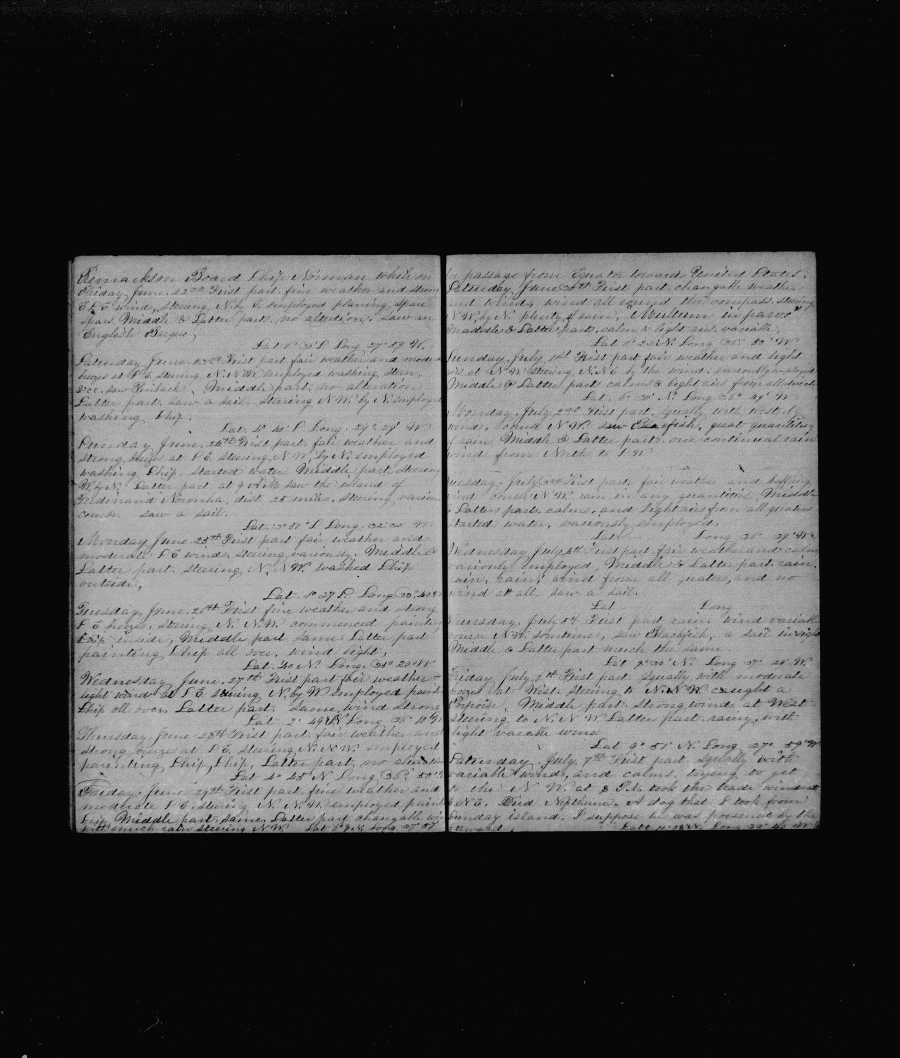 Remarks on Board Ship Norman while on
Friday, June 22nd First part fine weather and strong
S.E winds, steering N by E employed planing spare
spars, Middle & Latter part no alteration. saw an
English Barque,
Lat 6° S Long 27° W.
Saturday June 23rd First part fair weather and mode
brezes at S E. steering, N.N.W. employed washing
saw Finback. Middle part, no alteration
Latter part. saw a sail. steering N.W. by N. employed
washing Ship.
Lat. 5° 40 S. Long. 29° W
Sunday June. 24th First part, fair weather and
strong brezes at S E. steering, N.W. by N. employed
washing Ship, started water Middle part, steering
W. by N. Latter part at saw the island of
Ferdinand Noronha, dist. 25 miles, steering, various
courses saw a sail.
Lat. 3° S Long. 32° W.
Monday June 25th First part fair weather and
moderate S E winds, steering, variously, Middle &
Latter part. steering N. N.W. washed Ship
outside,
Lat 1° 27 S. Long 33° 40 W
Tuesday, June. 26th First fine weather, and strong
S E brezes, steering N. N.W. commenced painting
Ship inside, Middle part same Latter part
painting Ship all over, wind light,
Lat. 40 N. Long. 34° 20 W
Wednesday June. 27th First part fair weather &
light winds at S E steering, N. by W employed paint
Ship all over, Latter part. Same, wind strong
Lat. 2° 49 N Long 35° 10 W
Thursday June 28th First part, fair weather and
strong brezes at S E, steering N. N.W. employed
painting Ship, Ship, Latter part, no alteration
Lat 4° 45 N Long 36° 50 W
Friday, June 29th First part fine weather and
moderate S E. steering N. N.W. employed paint
Ship, Middle part. same, Latter part changable win
with much rain steering N.W. Lat Long 37
passage from Equator towards United States,
Saturday, June 30th First part changable weather
and winds, wind all round the compass, steering
N.W. by N. plenty of rain, Multum in parvo
Middle & Latter part, calm & light airs, variable,
Lat N Long 36° 50 W
Sunday, July 1st First part fair weather and light
air at N W steering N.N E by the wind. variously employed
Middle & Latter part calms & light airs from all
Lat. 6° N. Long 36° 47 W
Monday, July 2nd First part, squally with westerly
winds, course N.W. saw Blackfish, great quantities
of rain, Middle & Latter part, one continual rain
wind from North to S W
Tuesday, July 3rd First part, fair weather and baffling
wind course N W. rain in any quantities, Middle
& Latter part, calms, and light airs from all quaters
started water, variously employed,
Lat Long 36° 27 W.
Wednesday, July 4th First part fair weather and calm
variously employed, Middle & Latter part, rain,
rain, rain, wind from all quaters, and no
wind at all. saw a sail.
Lat Long
Thursday, July 5th First part rain, wind variable
course N.W. sometime, saw Blackfish, a sail in sight
Middle & Latter part much the same.
Lat 8° N. Long 37° W.
Friday, July 6th First part, squally with moderate
brezes at West. steering to N.N.W. caught a
Porpoise, Middle part. strong wind at West
steering to N. N W. Latter part. rainy, with
light variable wind
Lat 9° 51 N. Long 37° 59 W
Saturday, July, 7th First part, squally with
variable winds, and calms, trying to get
to the N W. at 8 P.M. took the trade wind at
N E. Died Neptune. A dog that I took from
Sunday island. I suppose he was poisened by the
steward,
Lat 11° N. Long